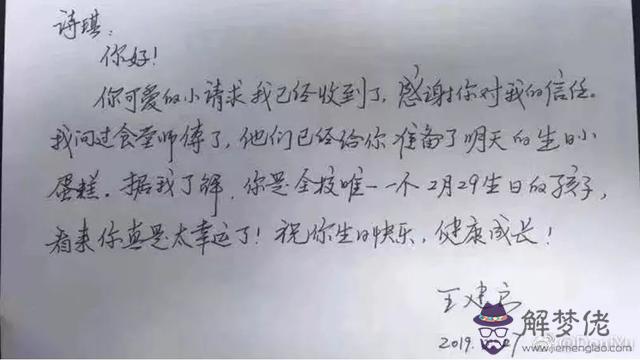 诗琪：
你好！
你可爱的小请求我已经收到了，感谢你对我的信任。
我问过食堂师傅了，他们已经给你准备了明天的生日小
蛋糕。据我了解，你是全校唯一一个2月29生日的孩子，
看来你真是太幸运了！祝你生日快乐，健康成长！
王建
2019.
解梦佬
www.jiemenglao.com